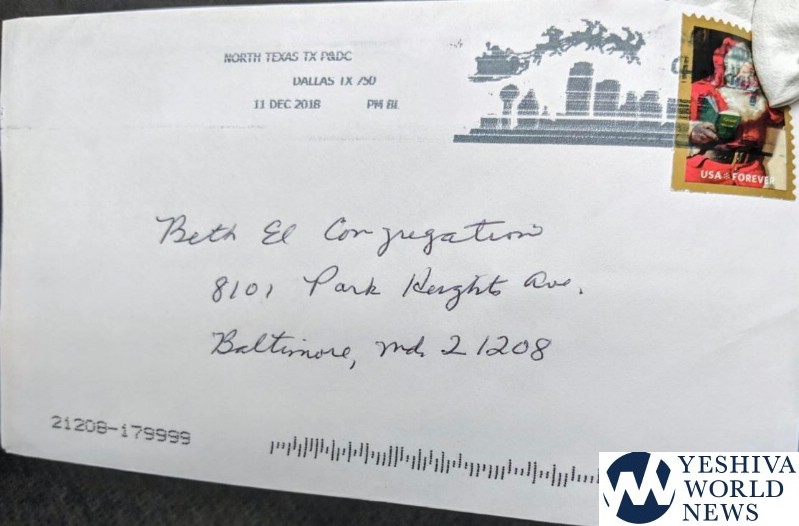 NORTH TEXAS TX P&DC
DALLAS TX 750
11 DEC 2018 PM 8L
USA FOREVER
Beth El Congregation
8101 Park Heights Ave.
Baltimore, Md. 21208
21208-179999
YESHIVA
WORLD
NEWS